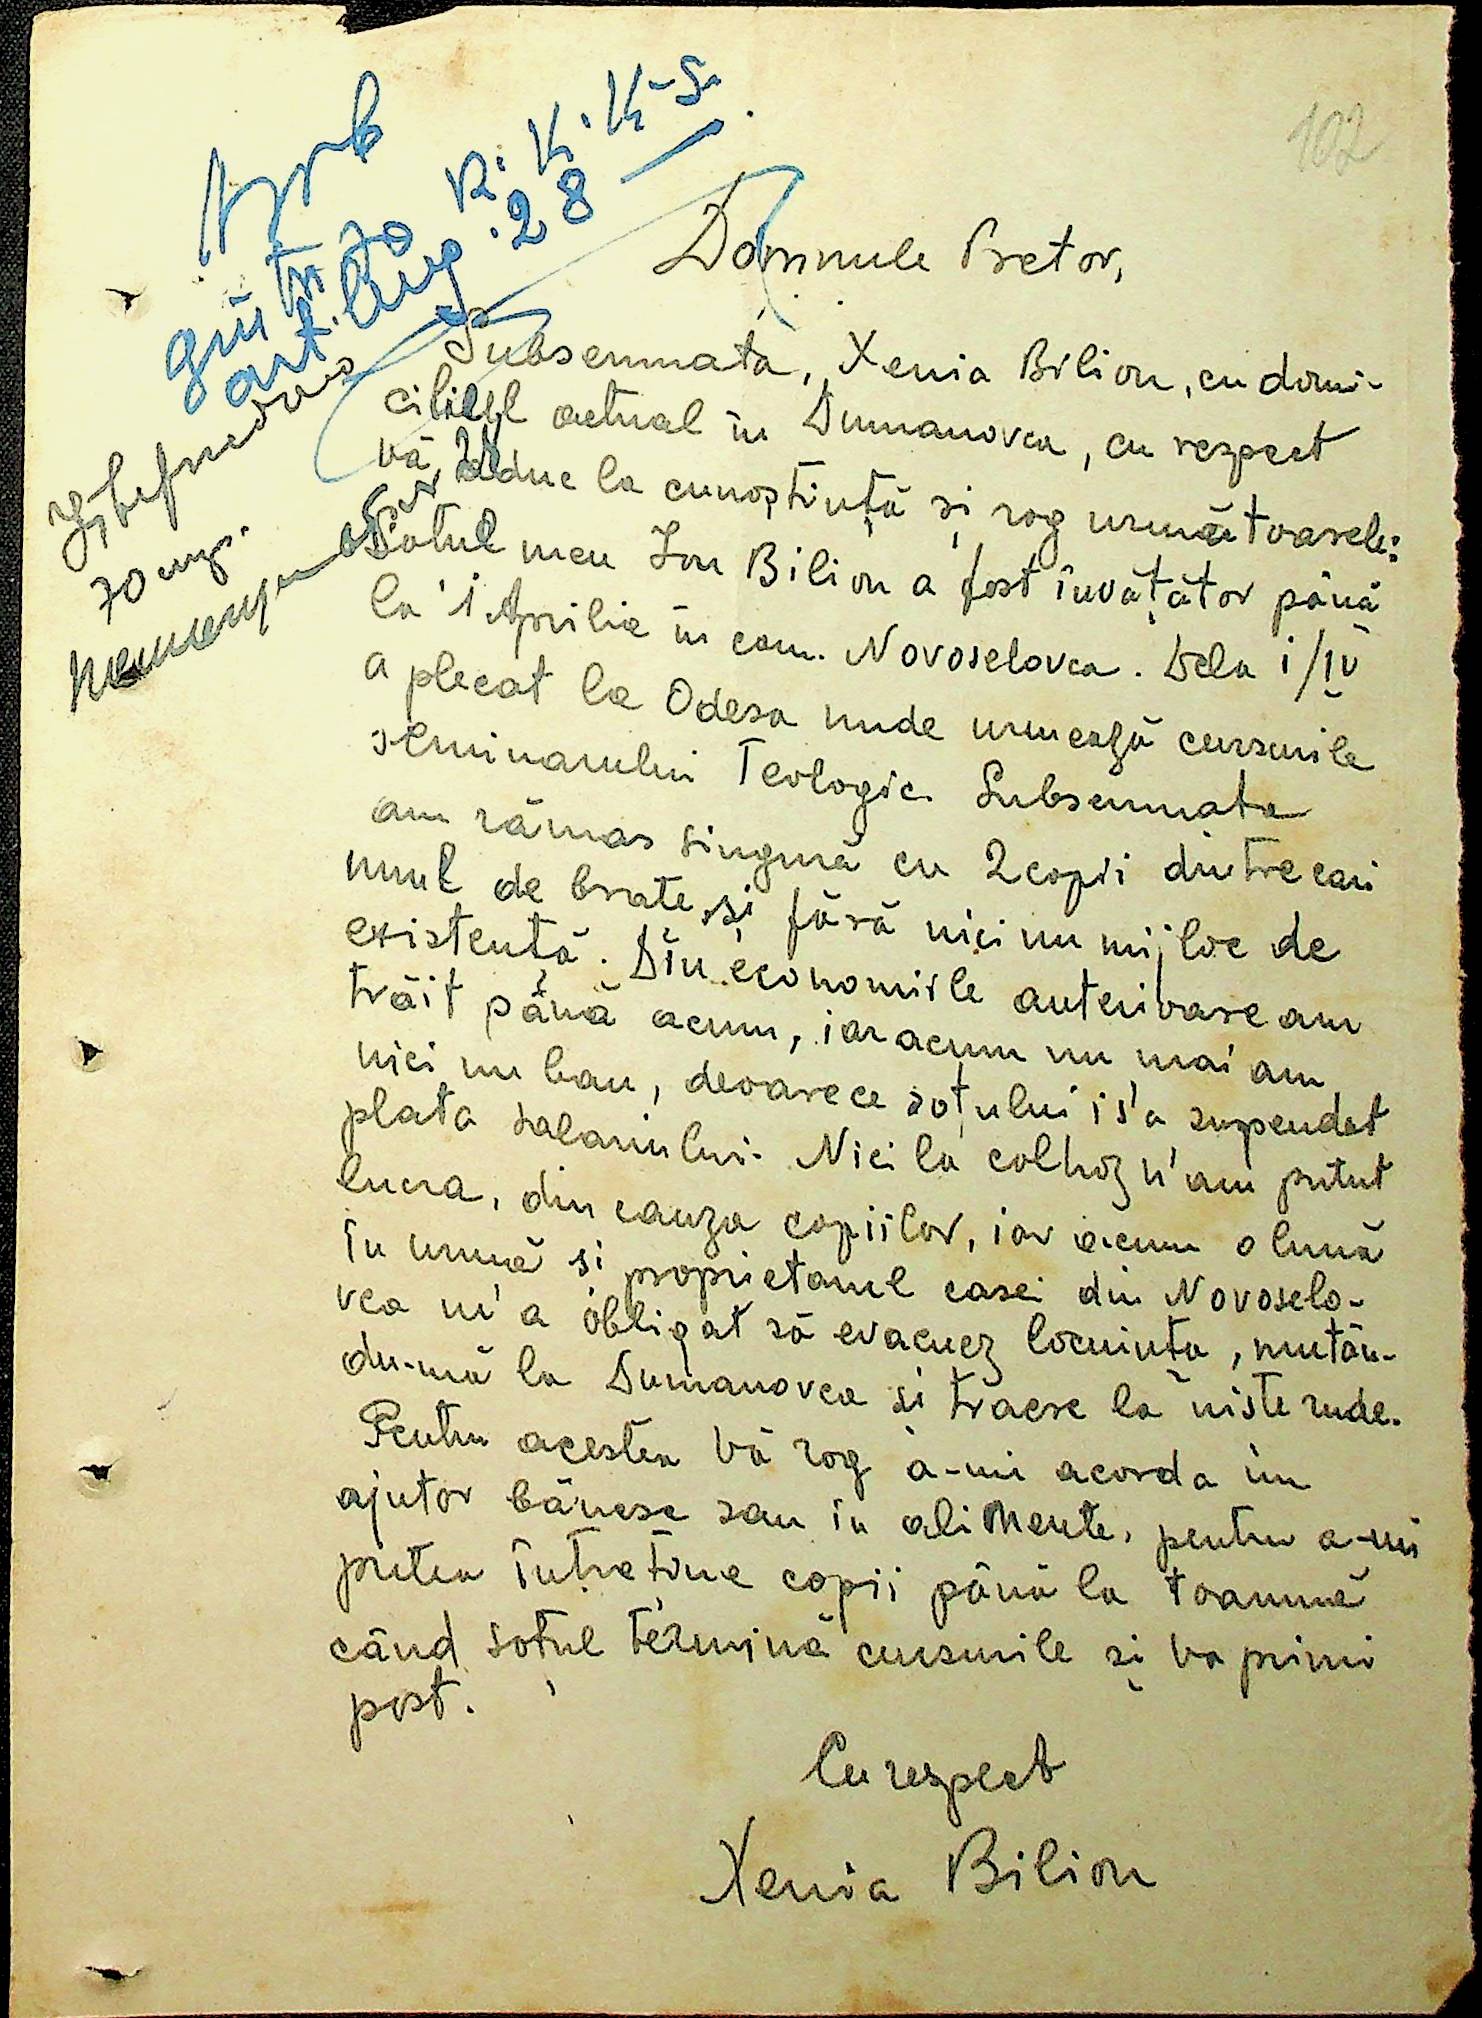 102
Domnule Pretor,
Subsemnata, Xenia Bilion, cu domi-
ciliul actual în Dumanovca, cu respect
vă aduc la cunoștiință și rog următoarele:
Sotul meu Ion Bilion a fost învățător până
la 1 Aprilie în com. Novoselovca. Dela 1/IV
a plecat la Odesa unde urmează cursurile
seminarului Teologic. Subsemnata
am rămas singură cu 2 copii dintre cari
unul de brate și fără nici un mijloc de
existență. Din economiile anterioare am
trăit până acum, iar acum nu mai am
nici un ban, deoarece soțului i s'a suspendat
plata salariului. Nici la colhoz n'am putut
lucra, din cauza copiilor, iar acum o lună
în urmă și proprietarul casei din Novoselo-
vca m'a obligat să evacuez locuința, mutân-
du-mă la Dumanovca și traesc la niste rude.
Pentru acestea Vă rog a-mi acorda un
ajutor bănesc sau în alimente, pentru a-mi
putea întreține copii până la toamnă
când soțul termină cursurile și va primi
post.
Cu respect
Xenia Bilion